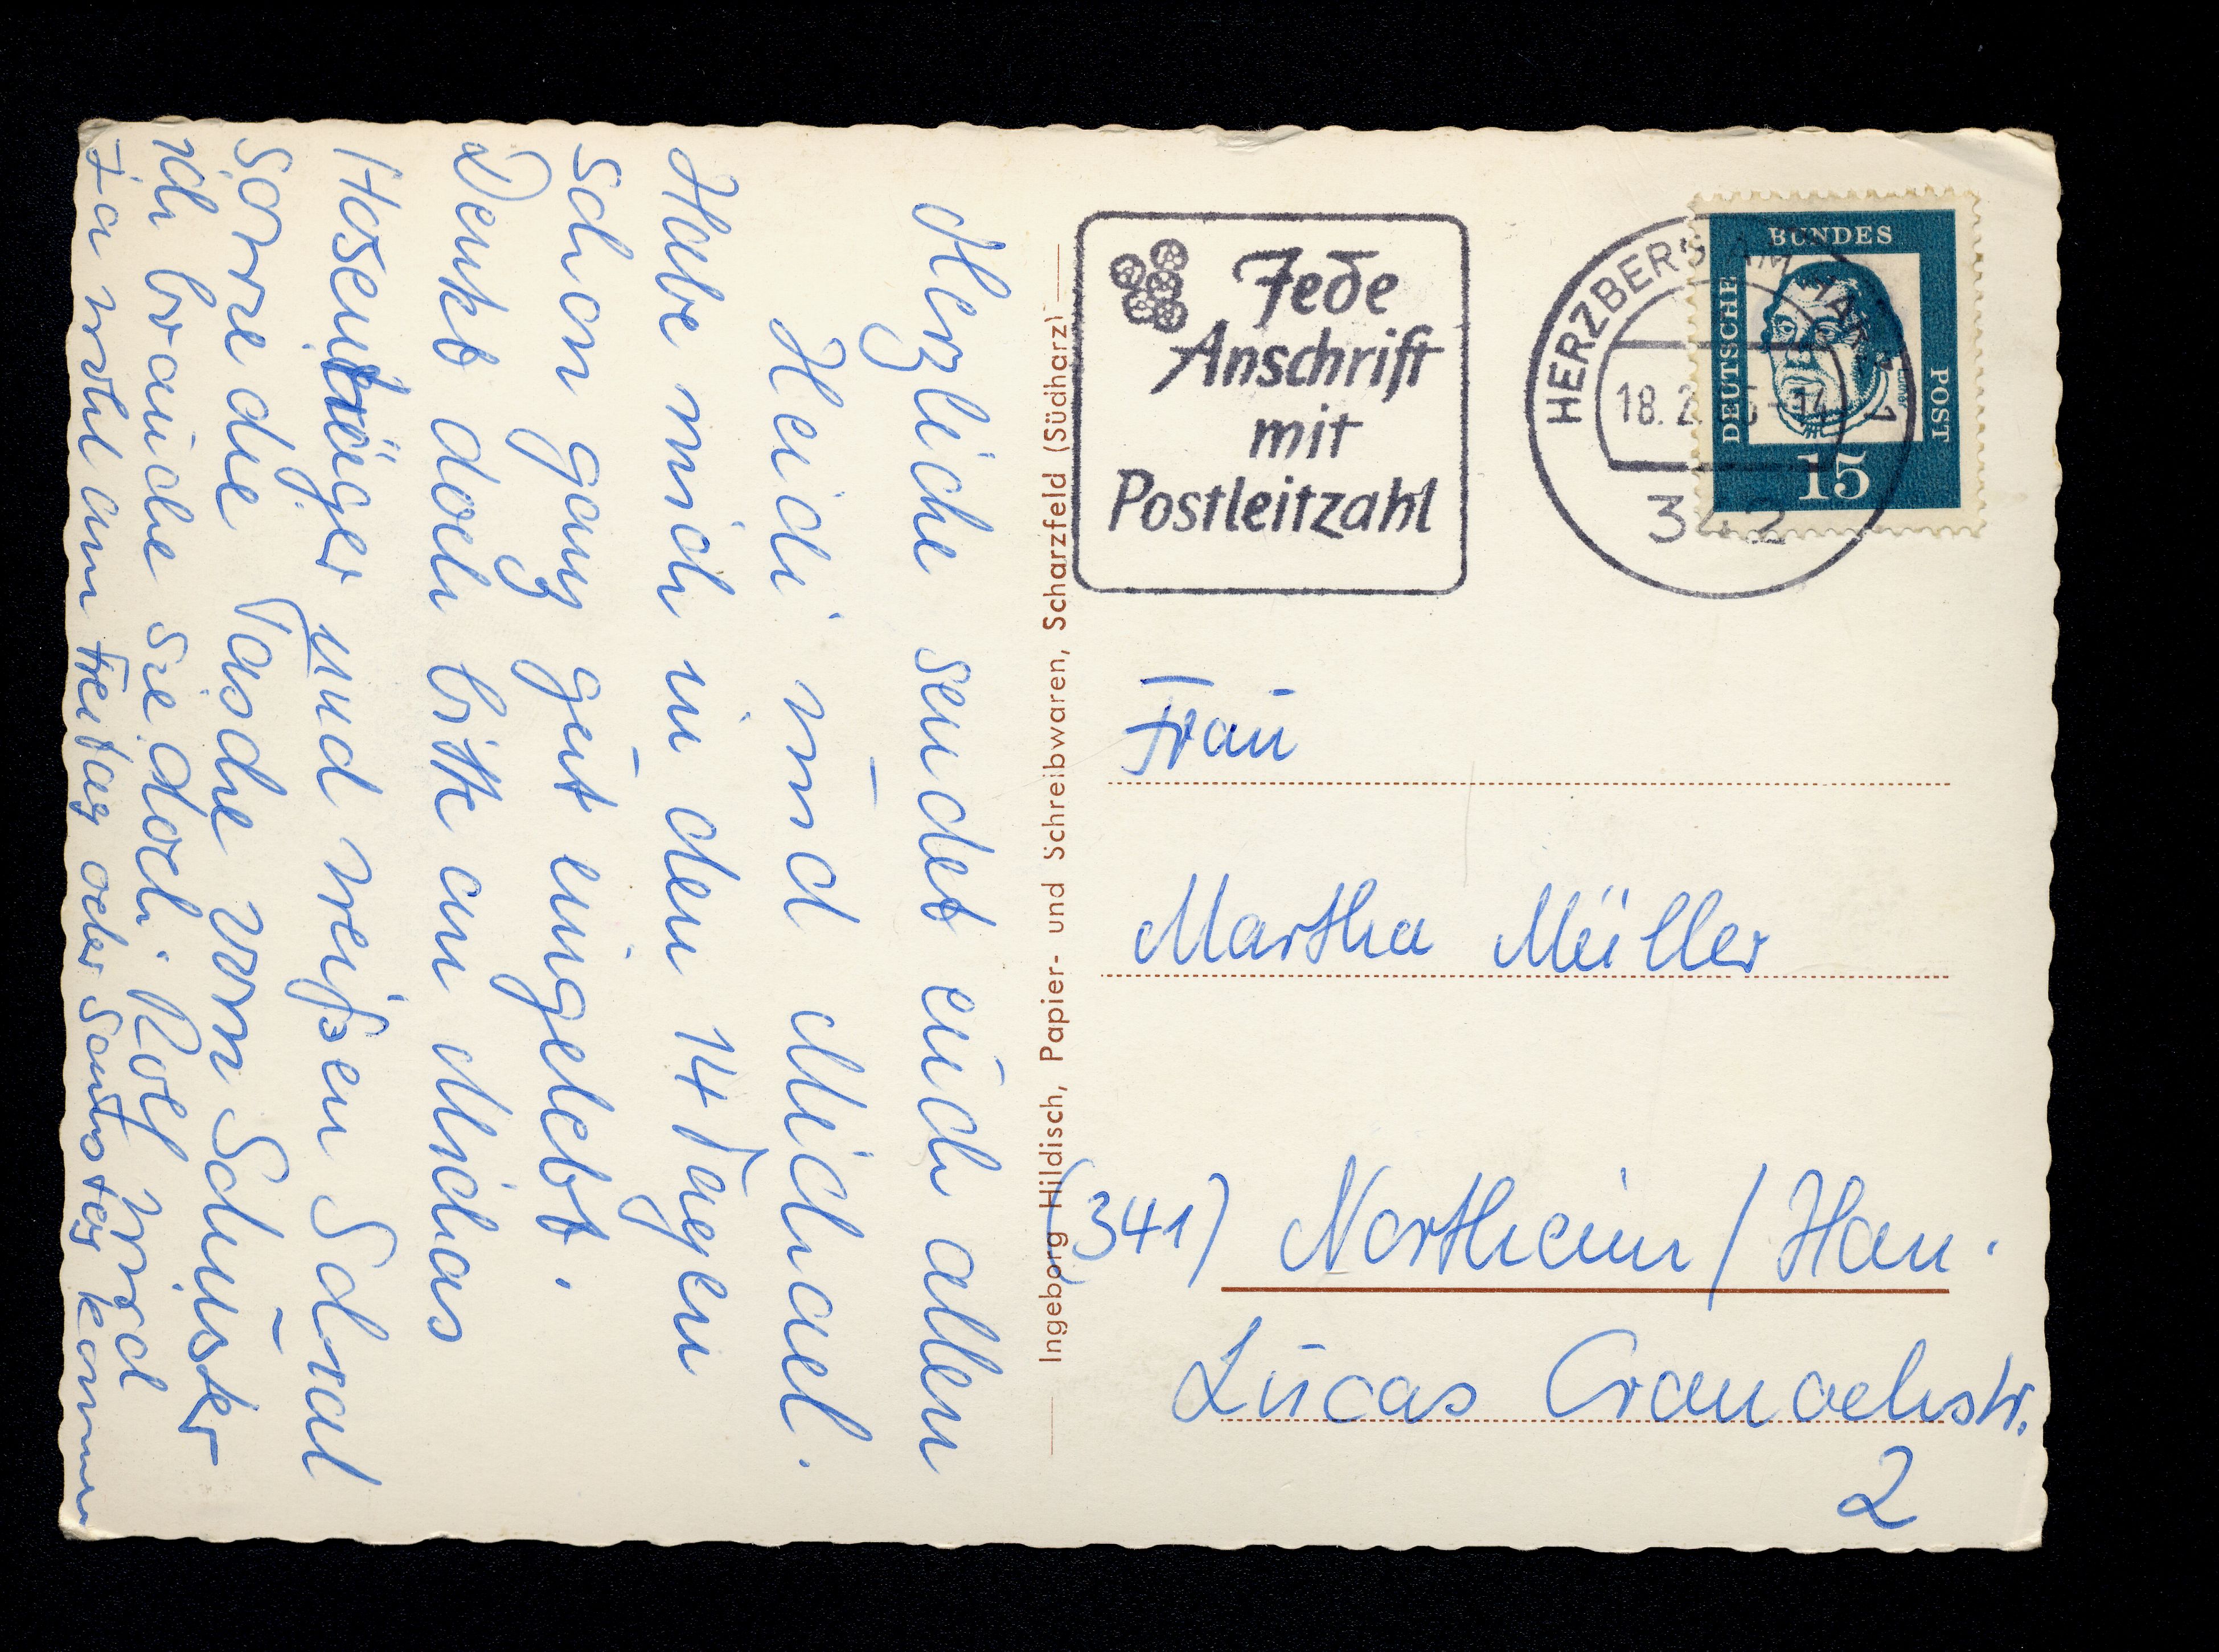 Herzliche sendet euch allen
Heidi und Michael.
Habe mich in den 14 Tagen
schon ganz gut eingelebt.
Denkt doch bitte an Michas
Hosenträger und weißen Schal
sowie die Tasche vom Schuster
ich brauche sie doch. Rolf wird
ja wohl am Freitag oder Samstag kommen
Ingeborg Hildisch, Papier- und Schreibwaren, Scharzfeld (Südharz)
Jede
Anschrift
mit
Postleitzahl
HERZBERG AM HARZ 1
18. 2
-14
342
DEUTSCHE
BUNDES
POST
15
Frau
Martha Müller
(341) Northeim / Han.
Lucas Cranachstr.
2